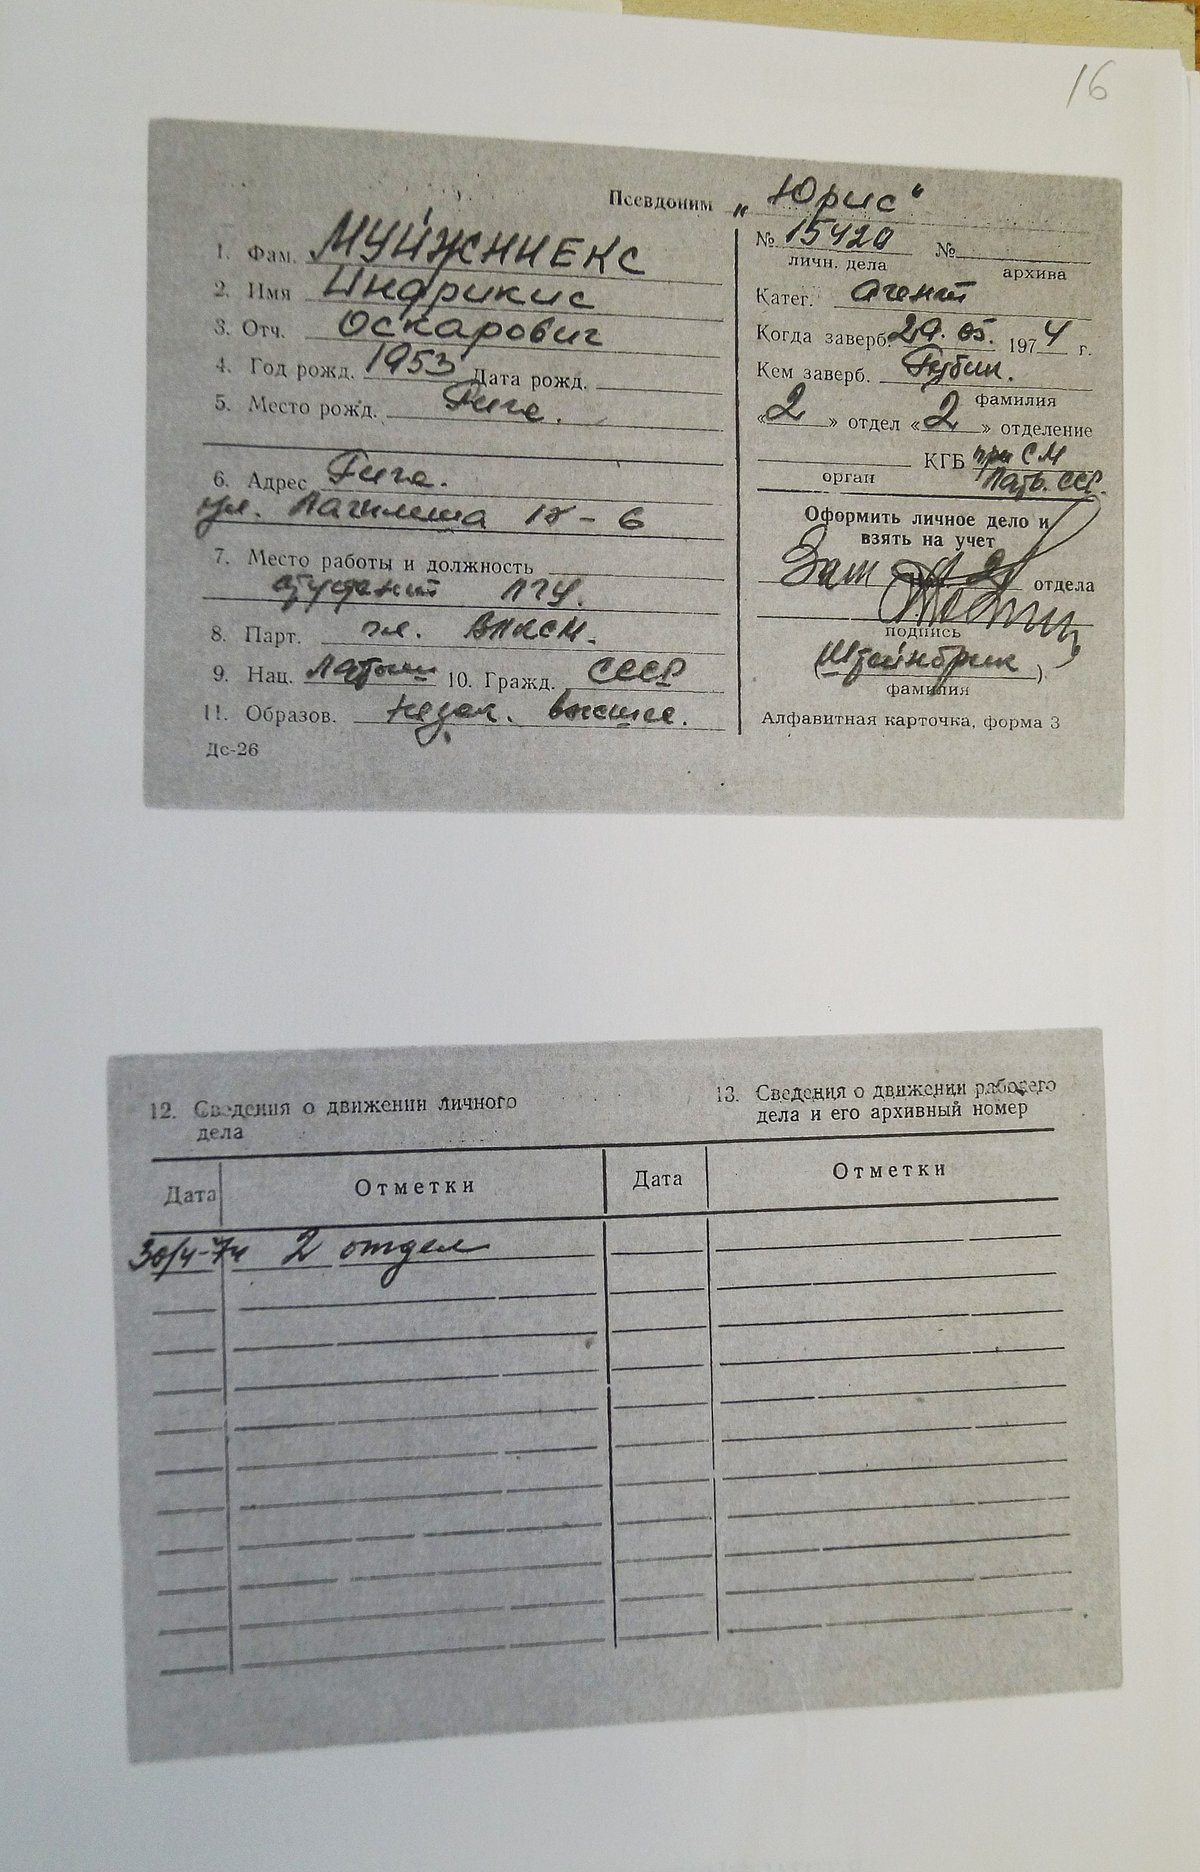 16
Псевдоним „Юрис“
1. Фам. МУЙЖНИЕКС
2. Имя Индрикис
3. Отч. Оскарович
4. Год рожд. 1953 Дата рожд.
5. Место рожд. Рига.
6. Адрес Рига.
ул. 6
7. Место работы и должность
студент ЛГУ.
8. Парт. чл. ВЛКСМ.
9. Нац. Латыш 10. Гражд. СССР
11. Образов. незак. высшее.
Дс-26
№ 15420 №
личн. дела архива
Катег. агент
Когда заверб. 29. 1974 г.
Кем заверб. Рубин.
фамилия
«2» отдел «2» отделение
КГБ при СМ
орган Латв. ССР.
Оформить личное дело и
взять на учет
Зам отдела
подпись
(Штейнбрик)
фамилия
Алфавитная карточка, форма 3
12. Сведения о движении личного
дела
13. Сведения о движении рабочего
дела и его архивный номер
Дата Отметки Дата Отметки
30/4-74 2 отдел